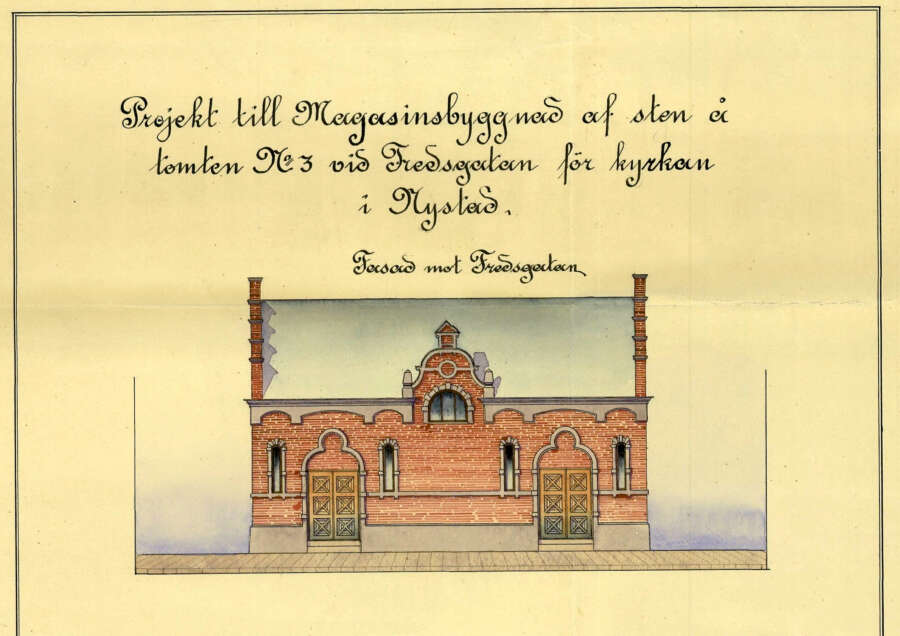 Projekt till Magasinsbyggnad af sten å
tomten No 3 vid Fredsgatan för kyrkan
i Nystad.
Fasad mot Fredsgatan